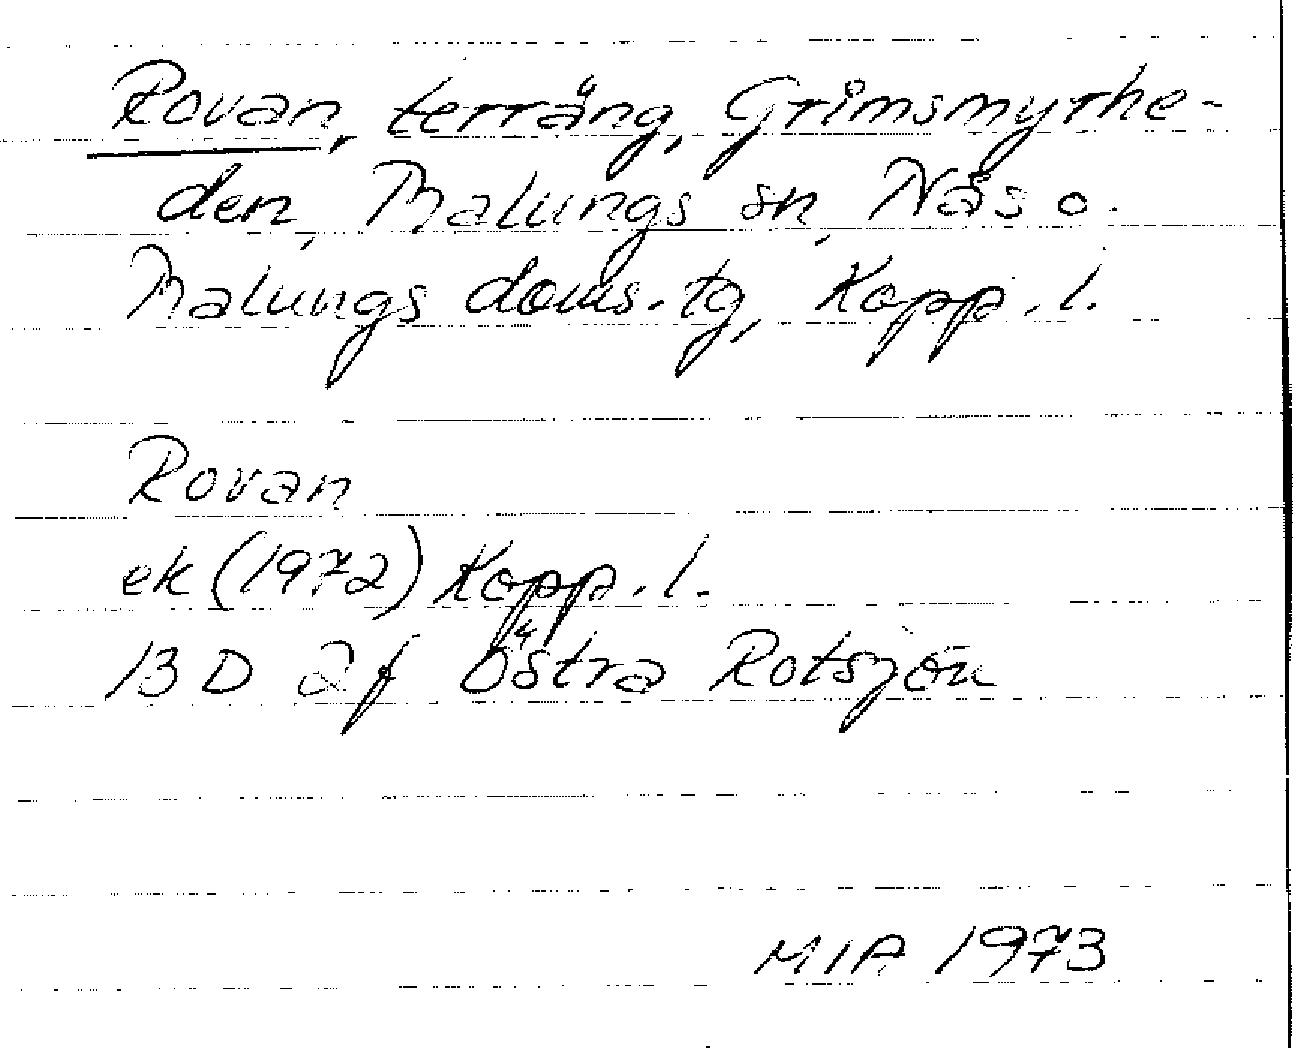 Rovan, terräng, Grimsmyrhe-
den, Malungs sn, Nås o.
Malungs doms. tg, Kopp. l.
Rovan
ek (1972) Kopp. l.
13 D 2f Östra Rotsjön
MIA 1973